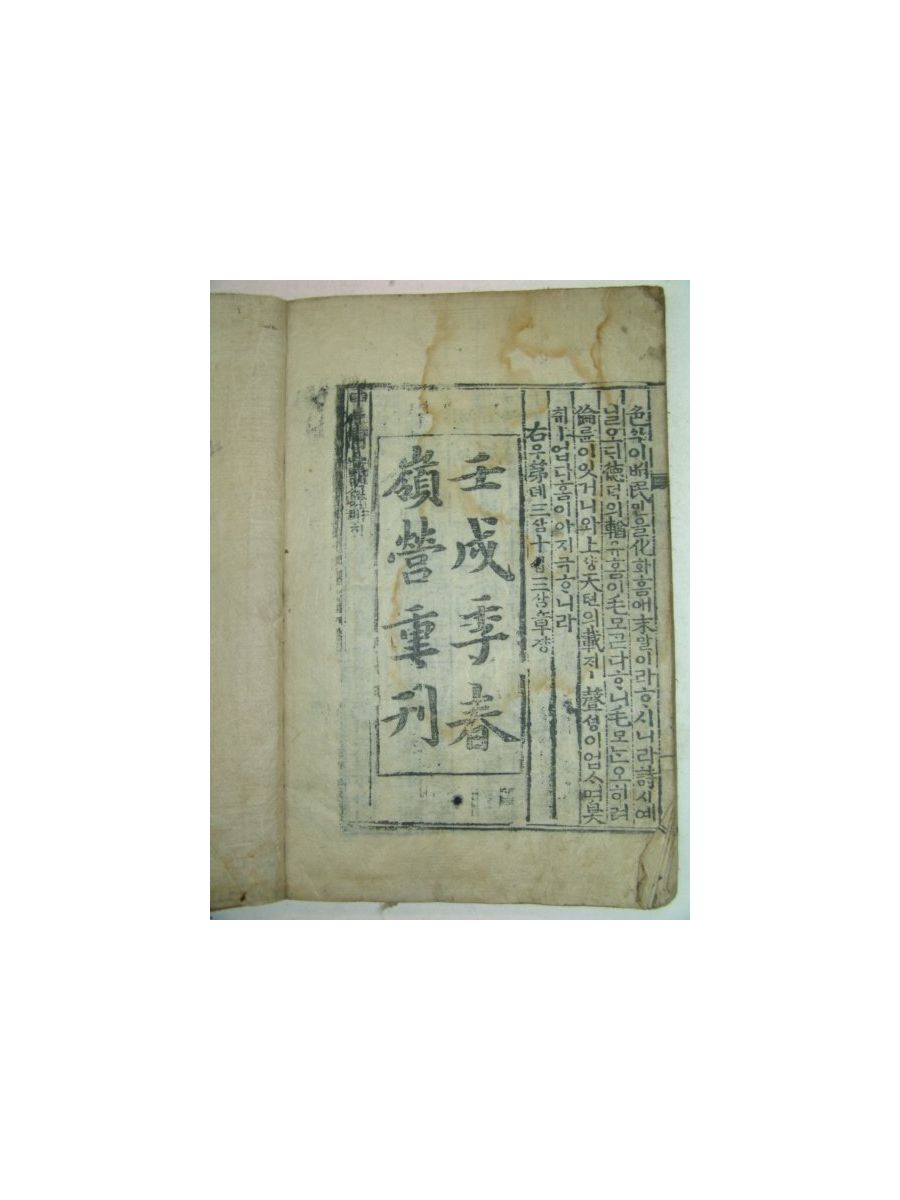 色ᄉᆡᆨ이民민을化화홈애末말이라ᄒᆞ시니라詩시예
닐오ᄃᆡ德덕의輶유홈이毛모ᄀᆞᆮ다ᄒᆞ니毛모ᄂᆞᆫ오히려
倫륜이잇거니와上샹天텬의載ᄌᆡㅣ聲셩이업스며臭
ᄎᆔㅣ업다홈이아지극ᄒᆞ니라
右우ᄂᆞᆫ第뎨三삼十십三삼章쟝
壬戌季春
嶺營重刊